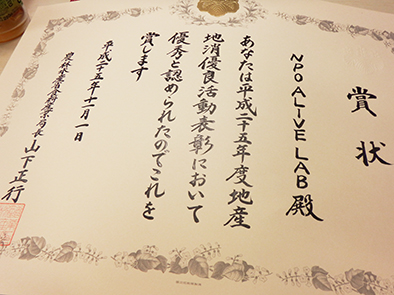 賞状
NPO ALIVE LAB 殿
あなたは平成二十五年度地産
地消優良活動表彰において
優秀と認められたのでこれを
賞します
平成二十五年十一月一日
農林水産省食料産業局長 山下正行